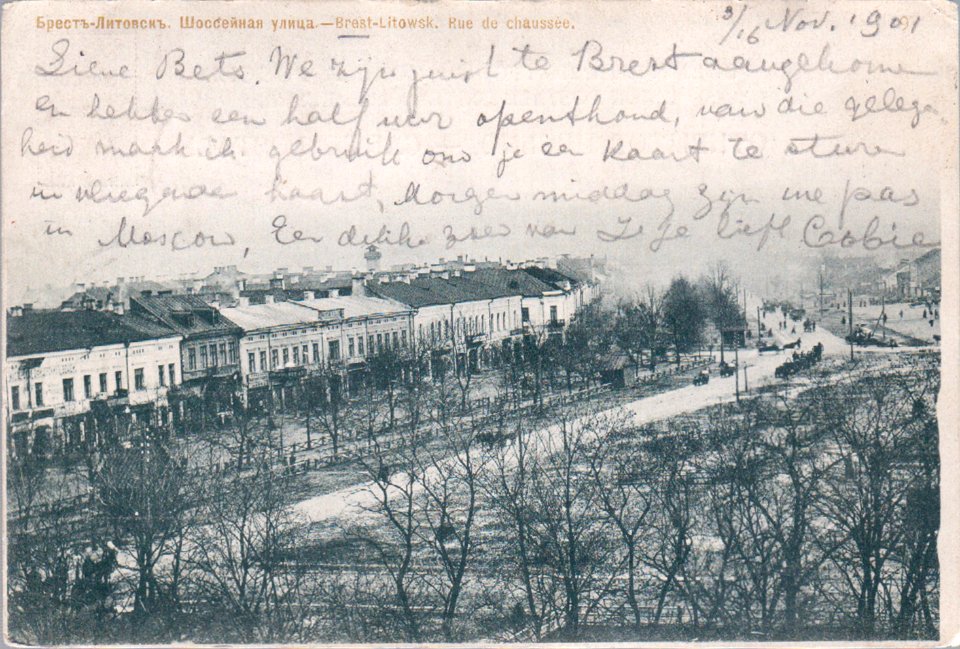 Брестъ-Литовскъ. Шоссейная улица.—Brest-Litowsk. Rue de chaussée.
3/16 Nov. 1901
Lieve Bets. We zijn juist te Brest aangekomen
en hebben een half uur openthond, van die gelegen-
heid maak ik gebruik om je een kaart te sturen
in vliegende haast, Morgen middag zijn we pas
in Moscow, Een dikke zoen van Je Je liefh Cobie